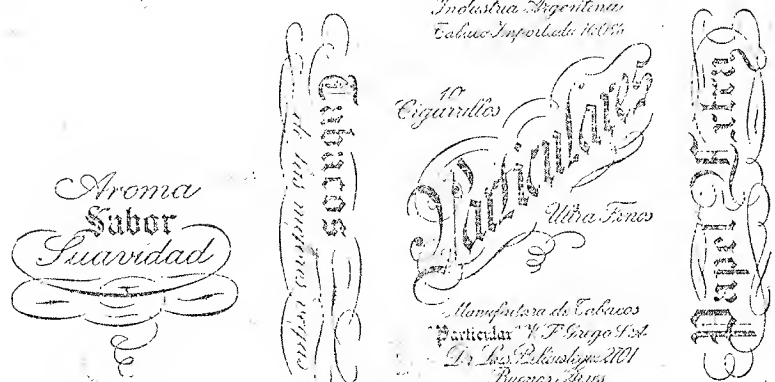 Aroma
Sabor
Suavidad
Tabacos
de las mejores
Industria Argentina
Tabaco Importado 100%
10
Cigarrillos
Particulares
Ultra Finos
Manufactura de Tabacos
"Particular" V. F. Grego S.A.
Buenos Aires
Papel